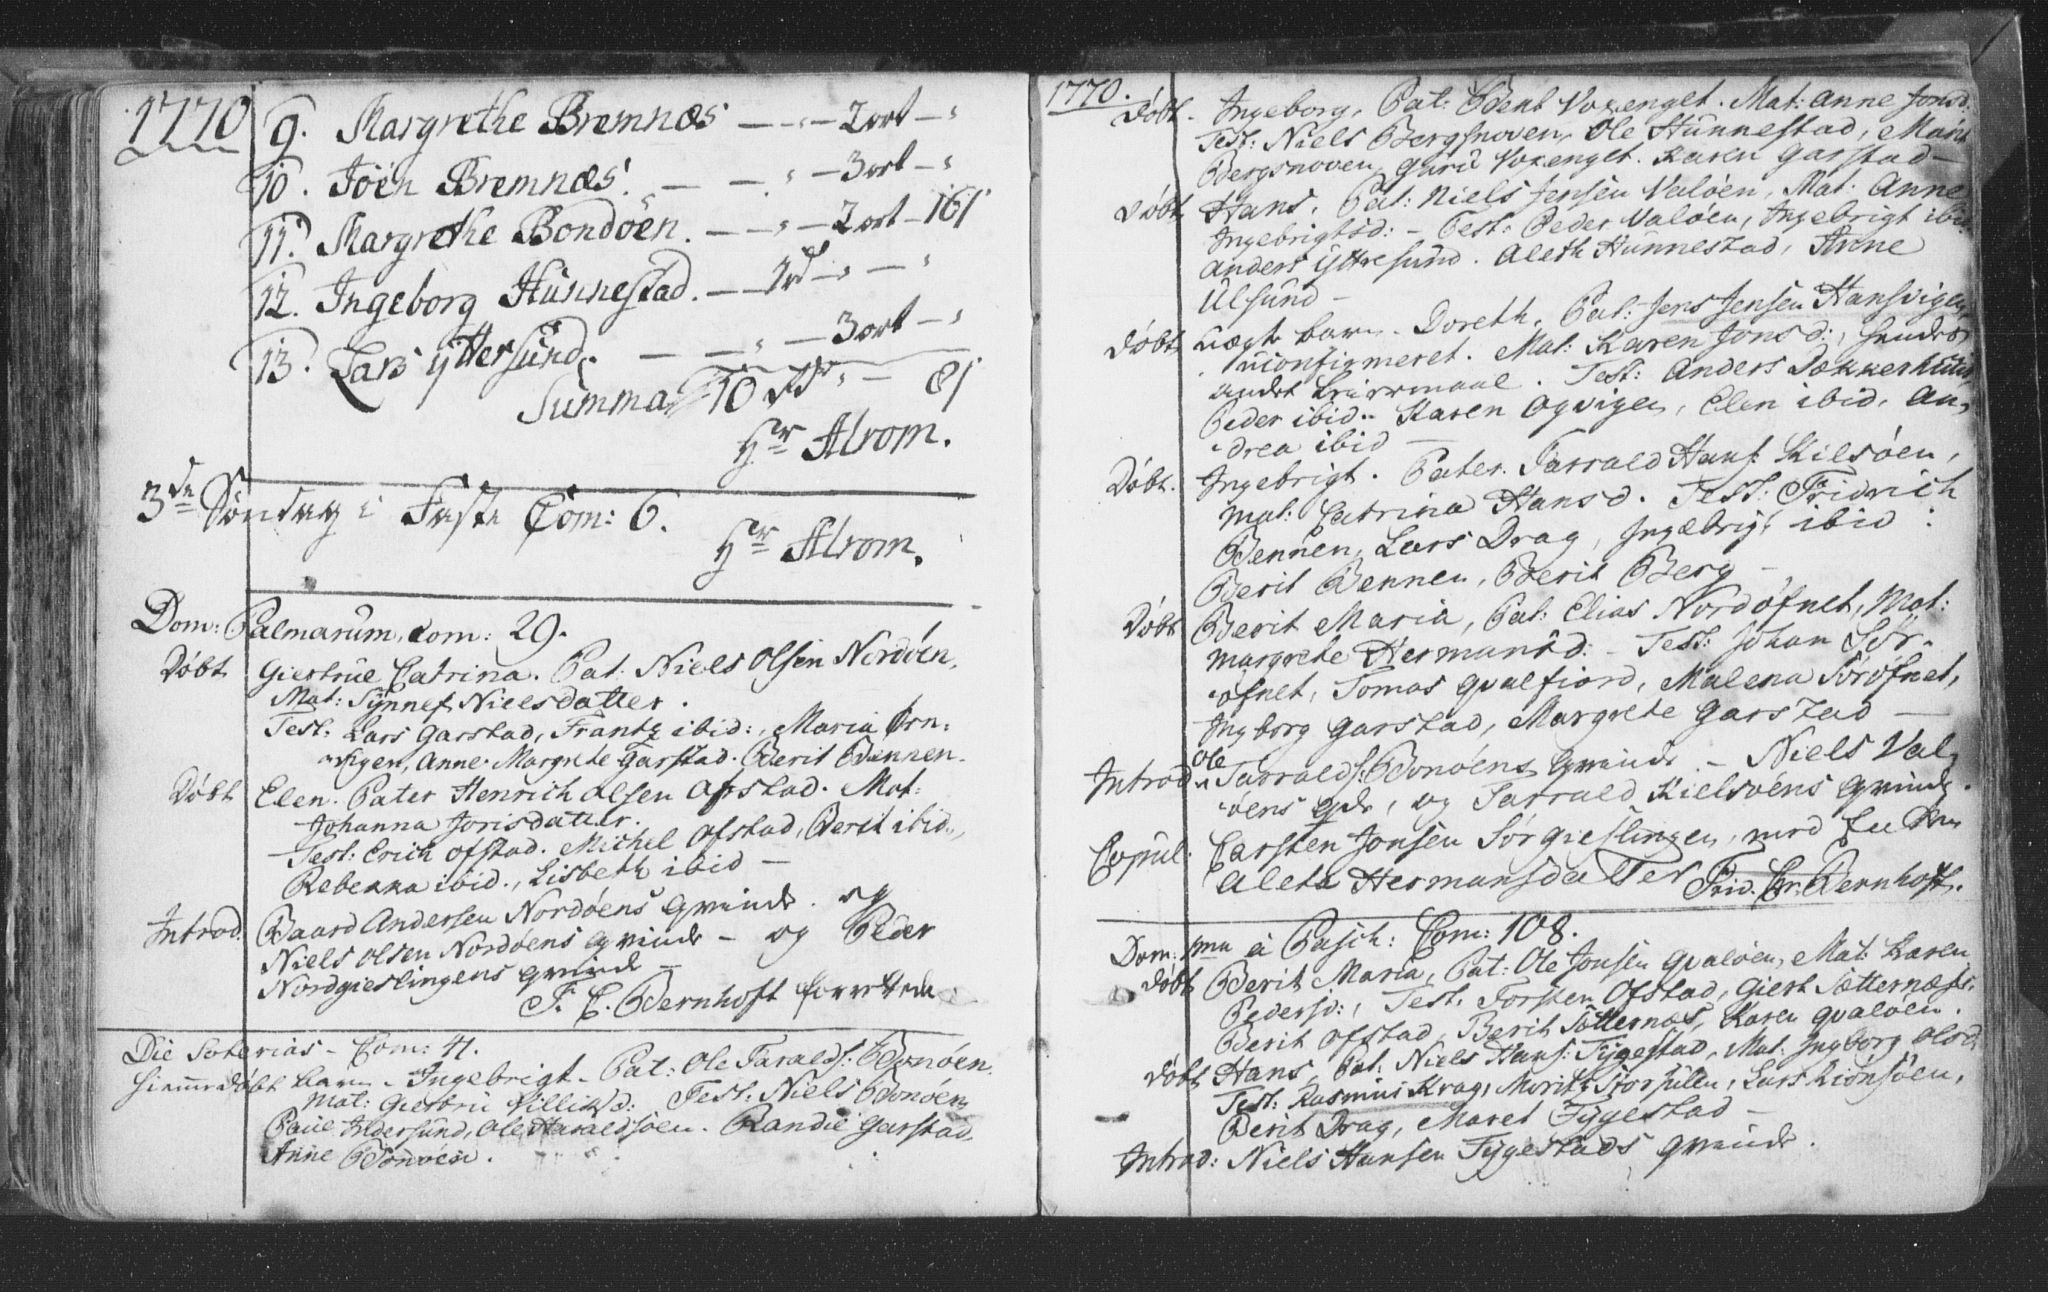 1770
9. Margrethe Bremnæs — „ — 2 ort — „
10. Joen Bremnæs. — — „ — 3 ort — „
11. Margrethe Bondöen. — — „ — 2 ort — 16ſ
12. Ingeborg Hünnestad. — 1 rd — „ — „
13. Lars yttersünd. — — „ — 3 ort — „
Summa 10 — 8ſ
Hr Alrom.
3de Söndag i Faste Com: 6.
Hr Alrom.
Dom: Palmarum, Com: 29.
Döbt Giertrüe Catrina. Pat: Niels Olsen Nordöen,
Mat: Synnef Nielsdatter.
Test: Lars Garstad, Frantz ibid:, Maria Örn-
vigen, Anne Margrete Garstad. Berit Bennen.
Döbt Elen. Pater Henrich Olsen Ofstad. Mat:
Johanna Jorisdatter.
Test: Erich Ofstad. Michel Ofstad, Berit ibid.,
Rebekka ibid., Lisbeth ibid —
Introd: Baard Andersen Nordöens Qvinde. og
Niels Olsen Nordöens Qvinde — og Peder
Nordgieslingens Qvinde —
F. C. Bernhoft forrettede
Die Soterias — Com: 41.
Hiemmedöbt barn — Ingebrigt — Pat: Ole Taralds: Bonöen.
Mat: Giertrü Villiksd: Test: Niels Bonöen,
Paüe Indersünd, Ole Haraldsöen. Randie Garstad,
Anne Bonöen.
1770.
Döbt. Ingeborg, Pat: Bent Voxenget. Mat: Anne Jonsd:
Test: Niels Bergsnoven, Ole Hünnestad, Marit
Bergsnoven, Gurü Voxenget. Karen Garstad —
Döbt Hans, Pat: Niels Jensen Valöen, Mat: Anne
Ingebrigtsd: — Test: Peder Valöen, Ingebrigt ibid:
Anders yttresund. Aleth Hünnestad, Anne
Ulsund —
Döbt Uægte barn — Doreth, Pat: Jens Jensen Hansvigen,
uconfirmeret. Mat: Karen Jonsd:, hendes
andet Leiermaal. Test: Anders
Peder ibid.. Karen Oqvigen, Elen ibid, An-
drea ibid —
Döbt. Ingebrigt. Pater. Tarrald Hans: Kilsöen,
Mat: Catrina Hansd. Test: Fridrich
Bennen, Lars Drag, Ingebrigt ibid:
Berit Bennen, Berit Berg —
Döbt Berit Maria, Pat: Elias Nordöfnet, Mat:
Margrete Hermansd: — Test: Johan Sör-
öfnet, Tomas Qvalfiord, Malena Söröfnet,
Ingborg Garstad, Margrete Garstad —
Introd: Ole Tarralds: Bonöens Qvinde — Niels Val-
öens Qde, og Tarrald Kielsöens Qvinde.
Copul: Carsten Jonsen Sörgieslingen, med
Aleta Hermansdatter Frid. Chr. Bernhoft.
Dom: 1ma à Pasch: Com: 108.
Döbt Berit Maria, Pat: Ole Jonsen Qvalöen, Mat: Karen
Pedersd:, Test: Torsten Ofstad, Giert Sætternæs,
Berit Ofstad, Berit Sætternæs, Karen Qvalöen.
Döbt Hans, Pat: Niels Hans: Tygestad, Mat: Ingborg Olsd:
Test: Rasmus Krag, Morits Storsülen, Lars Liönsöen,
Berit Drag, Maret Tygestad —
Introd: Niels Hansen Tygestads Qvinde.